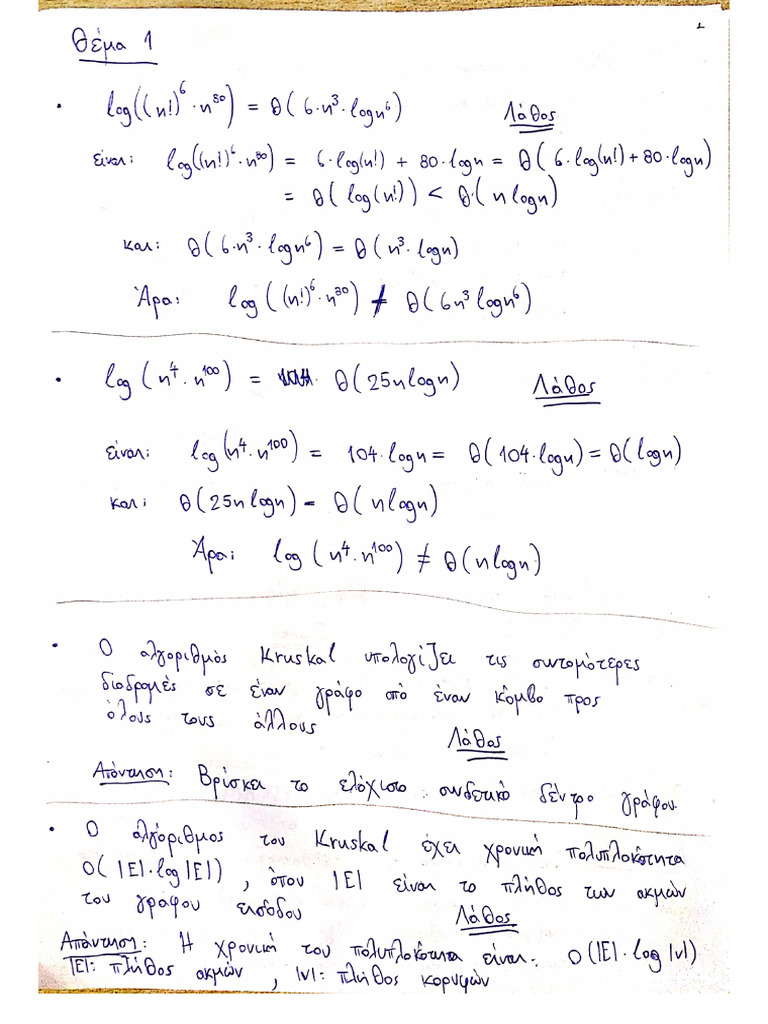 1
Θέμα 1
• log((n!)^6 · n^80) = Θ(6·n^3·logn^6) Λάθος
είναι: log((n!)^6 · n^80) = 6·log(n!) + 80·logn = Θ(6·log(n!) + 80·logn)
= Θ(log(n!)) < Θ·(n logn)
και: Θ(6·n^3·logn^6) = Θ(n^3·logn)
Άρα: log((n!)^6·n^80) ≠ Θ(6n^3 logn^6)
• log(n^4·n^100) = Θ(25nlogn) Λάθος
είναι: log(n^4·n^100) = 104·logn = Θ(104·logn) = Θ(logn)
και: Θ(25nlogn) = Θ(nlogn)
Άρα: log(n^4·n^100) ≠ Θ(nlogn)
• Ο αλγοριθμός Kruskal υπολογίζει τις συντομότερες
διαδρομές σε έναν γράφο από έναν κόμβο προς
όλους τους άλλους
Λάθος
Απάντηση: Βρίσκει το ελάχιστο συνδετικό δέντρο γράφου.
• Ο αλγόριθμος του Kruskal έχει χρονική πολυπλοκότητα
Ο(|Ε|·log|Ε|), όπου |Ε| είναι το πλήθος των ακμών
του γράφου εισόδου Λάθος
Απάντηση: Η χρονική του πολυπλοκότητα είναι: Ο(|Ε|·log|V|)
|Ε|: πλήθος ακμών, |V|: πλήθος κορυφών